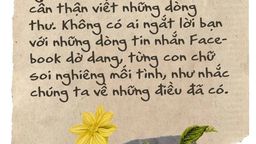 cẩn thận viết những dòng
thư. Không có ai ngắt lời bạn
với những dòng tin nhắn Face-
book dở dang, từng con chữ
soi nghiêng mối tình, như nhắc
chúng ta về những điều đã có.